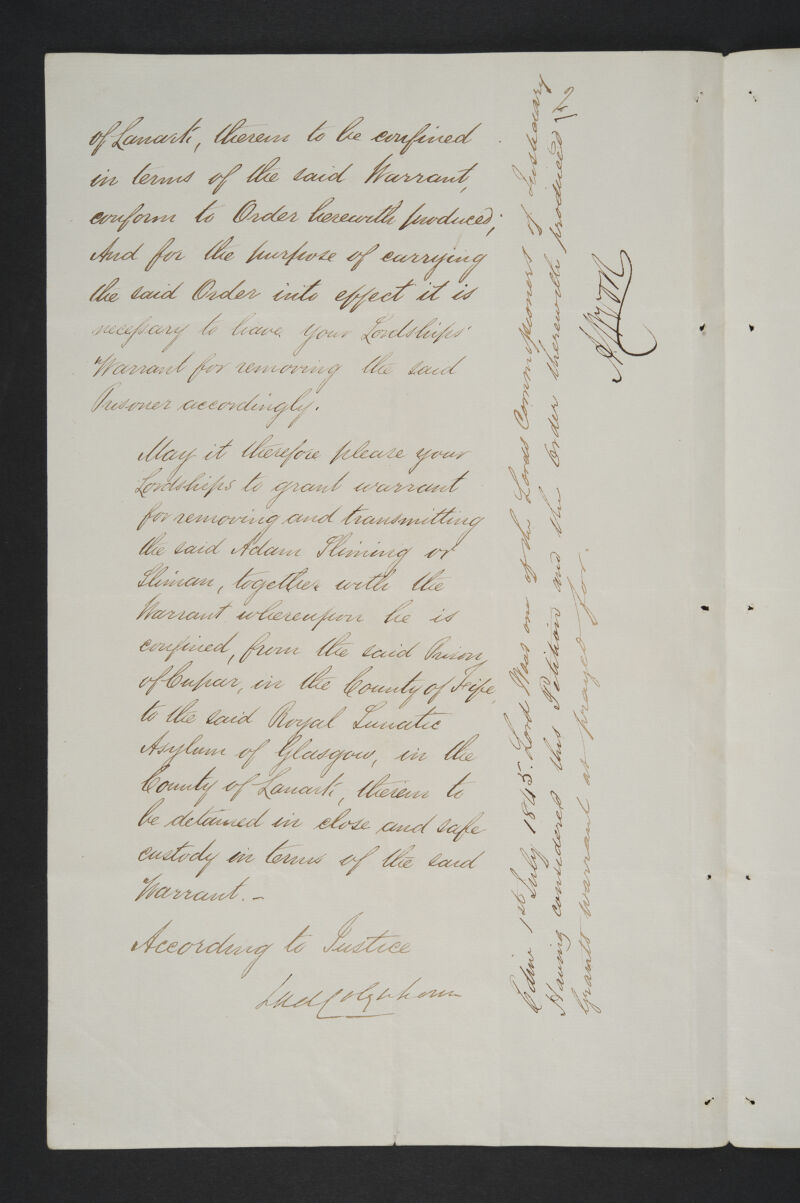 of Lanark, therein to be confined
in terms of the said Warrant,
conform to Order herewith produced;
And for the purpose of carrying
the said Order into effect it is
necessary to have your Lordships'
Warrant for removing the said
Prisoner accordingly.
May it therefore please your
Lordships to grant warrant
for removing and transmitting
the said Adam Sliming or
Sliman, together with the
Warrant whereupon he is
confined, from the said Prison
of Cupar, in the County of Fife,
to the said Royal Lunatic
Asylum of Glasgow, in the
County of Lanark, therein to
be detained in close and safe
custody in terms of the said
Warrant.-
According to Justice
Colquhoun
Edinr 1st July 1845. Lord one of the Lords Commissioners of Justiciary
Having considered this Petition and the Order therewith produced
Grants warrant as prayed for.